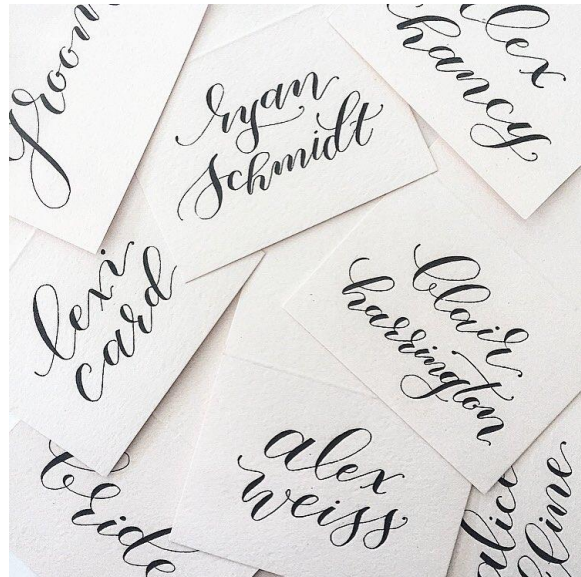 groom
ryan
schmidt
alex
chancy
lexi
card
blair
harrington
alex
weiss
bride